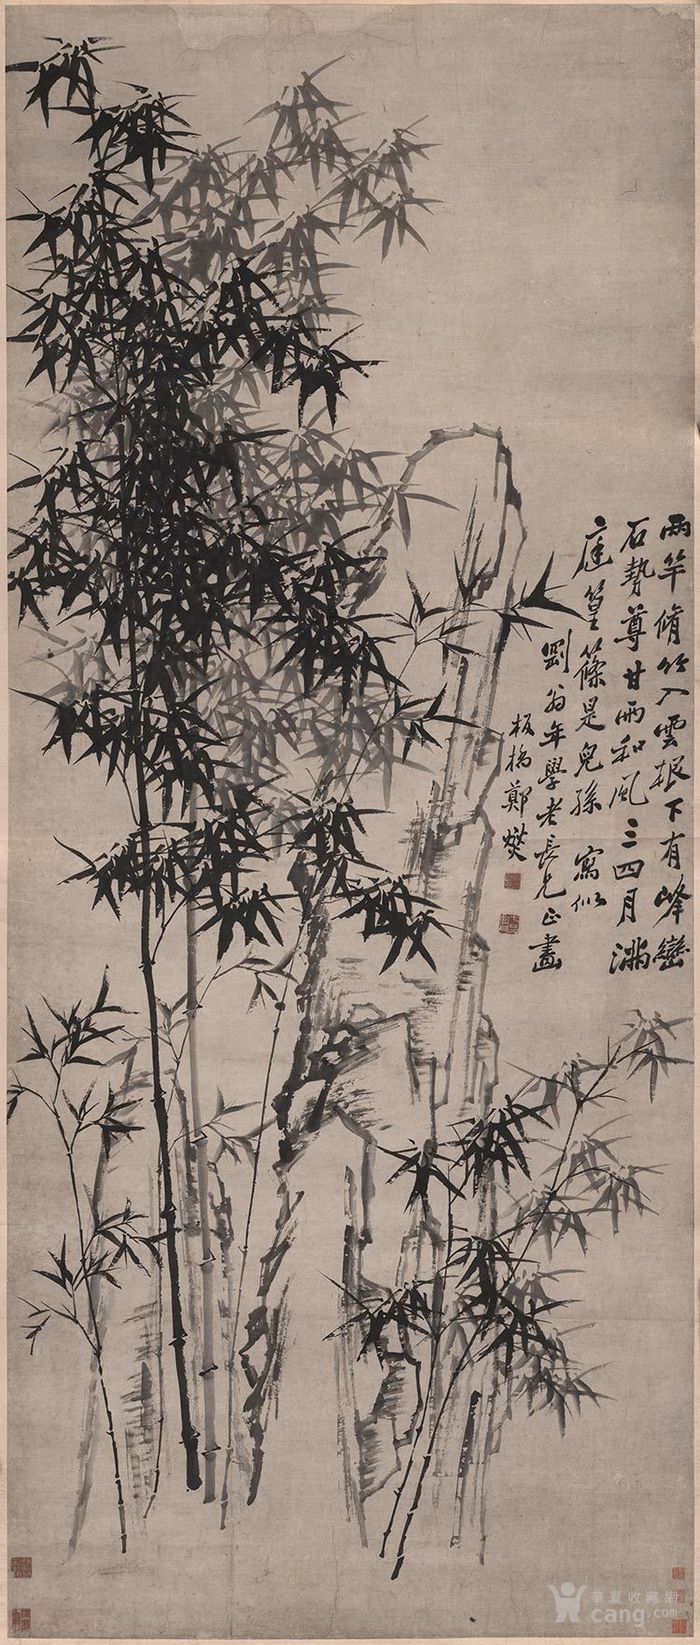 兩竿脩竹入雲根下有峰巒
石勢尊甘雨和風三四月滿
庭篁篠是兒孫 寫似
劉翁年學老長兄正畫
板橋鄭燮
華夏收藏網
cang.com